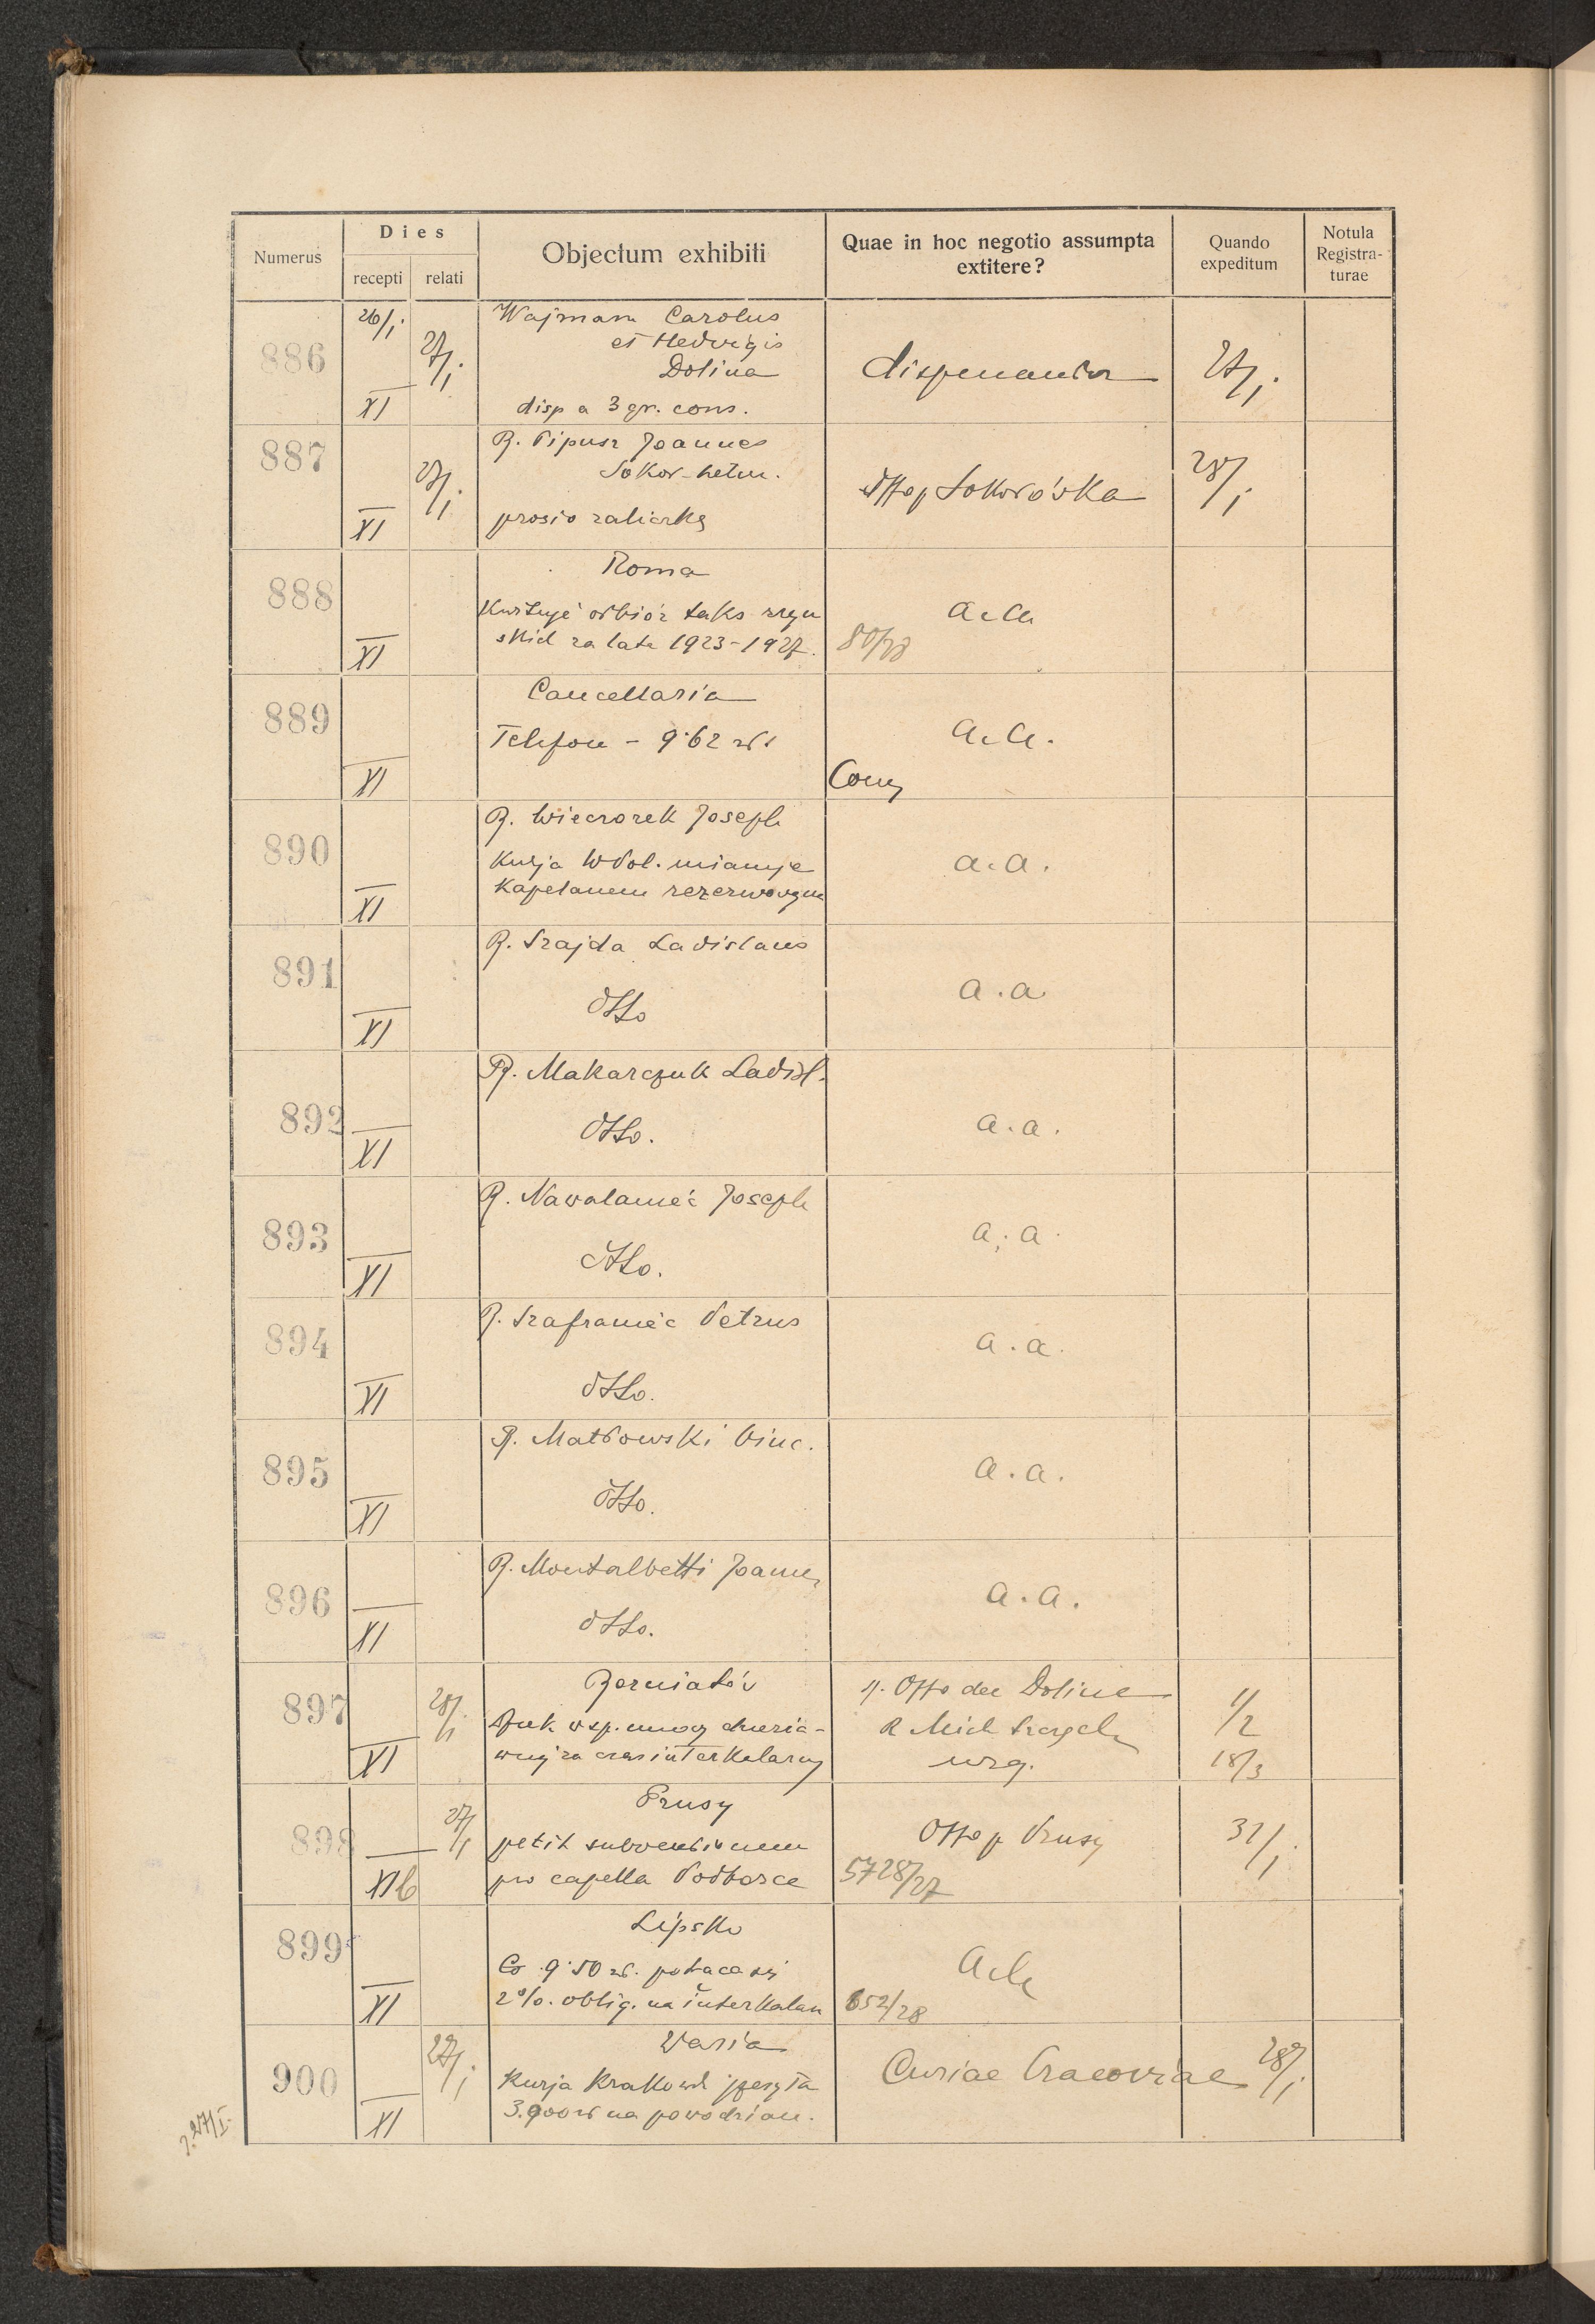 Numerus
Dies
recepti relati
Objectum exhibiti
Quae in hoc negotio assumpta extitere?
Quando expeditum
Notula Registra-turae
886 26/I 27/I XI
Wajman Carolus
et Hedvigis
Dolina
disp a 3 gr. cons.
dispensantur 27/I.
887 27/I. XI
R. Pipusz Joannes
Sokor-hetm.
prosi o zaliczkę
Otto p Sokorówka 28/I.
888 XI
Roma
Kwituje odbiór taks
skich za lata 1923-1927.
a a
80/28
889 XI
Cancellaria
Telefon - 9.62 zł
a. a.
890 XI
R. Wieczorek Joseph
Kurja W Pol. mianuje
Kapelanem rezerwowym
a. a.
891 XI
R. Szajda Ladislaus
dtto
a. a
892 XI
R. Makarczuk Ladisl.
dtto.
a. a.
893 XI
R. Nawalaniec Joseph
dtto.
a. a.
894 XI
R. Szafraniec Petrus
dtto.
a. a.
895 XI
R. Matkowski Vinc.
dtto.
a. a.
896 XI
R. Montalbetti Joannes
dtto.
a. a.
897 28/I XI
Rozniatów
za czas interkalarny
Otto dec Doline 1/2
R Mich
urg. 18/3
898 27/I XIb
Prusy
petit subventionem
pro capella Podborce
Otto p Prusy 31/I.
5728/27
899 XI
Lipsko
Co 9.50 zł. potrąca się
2%. oblig. na interkalar
a a
652/28
900 27/I. XI
Varia
Kurja Krakowsk przesyła
3.900 zł na powodzian.
Curiae Cracoviae 28/I.
27/I.